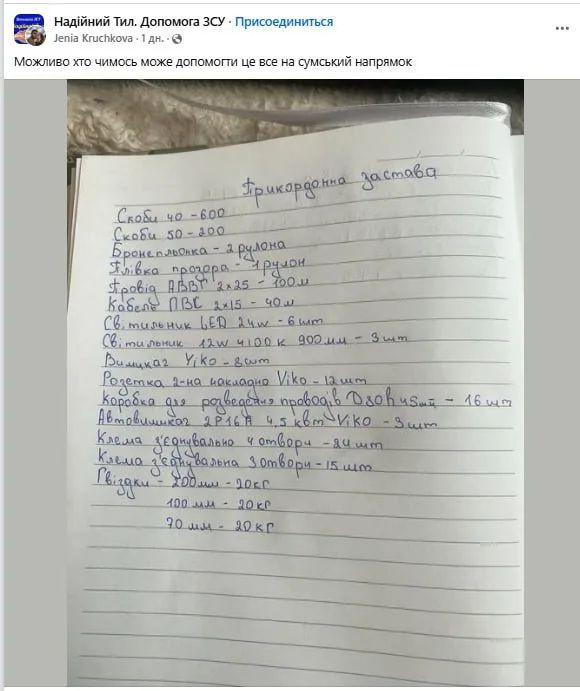 Надійний Тил. Допомога ЗСУ · Присоединиться
Jenia Kruchkova · 1 дн. ·
Можливо хто чимось може допомогти це все на сумський напрямок
Прикордонна застава
Скоби 40 - 600
Скоби 50 - 200
Бронепльонка - 2 рулона
Плівка прозора - 1 рулон
Провід АВВГ 2×25 - 100м
Кабель ПВС 2×15 - 40м
Світильник LED 24w - 6 шт
Світильник 12w 4100к 900мм - 3 шт
Вимикач Viko - 8шт
Розетка 2-на накладна Viko - 12шт
Коробка для розведення проводів D80h 45мм - 16 шт
Автовимикач 2P16A 4,5 квт Viko - 3шт
Клема з'єднувальна 4 отвори - 24 шт
Клема з'єднувальна 3 отвори - 15 шт
Гвіздки - 200мм - 20кг
100мм - 20кг
70мм - 20кг